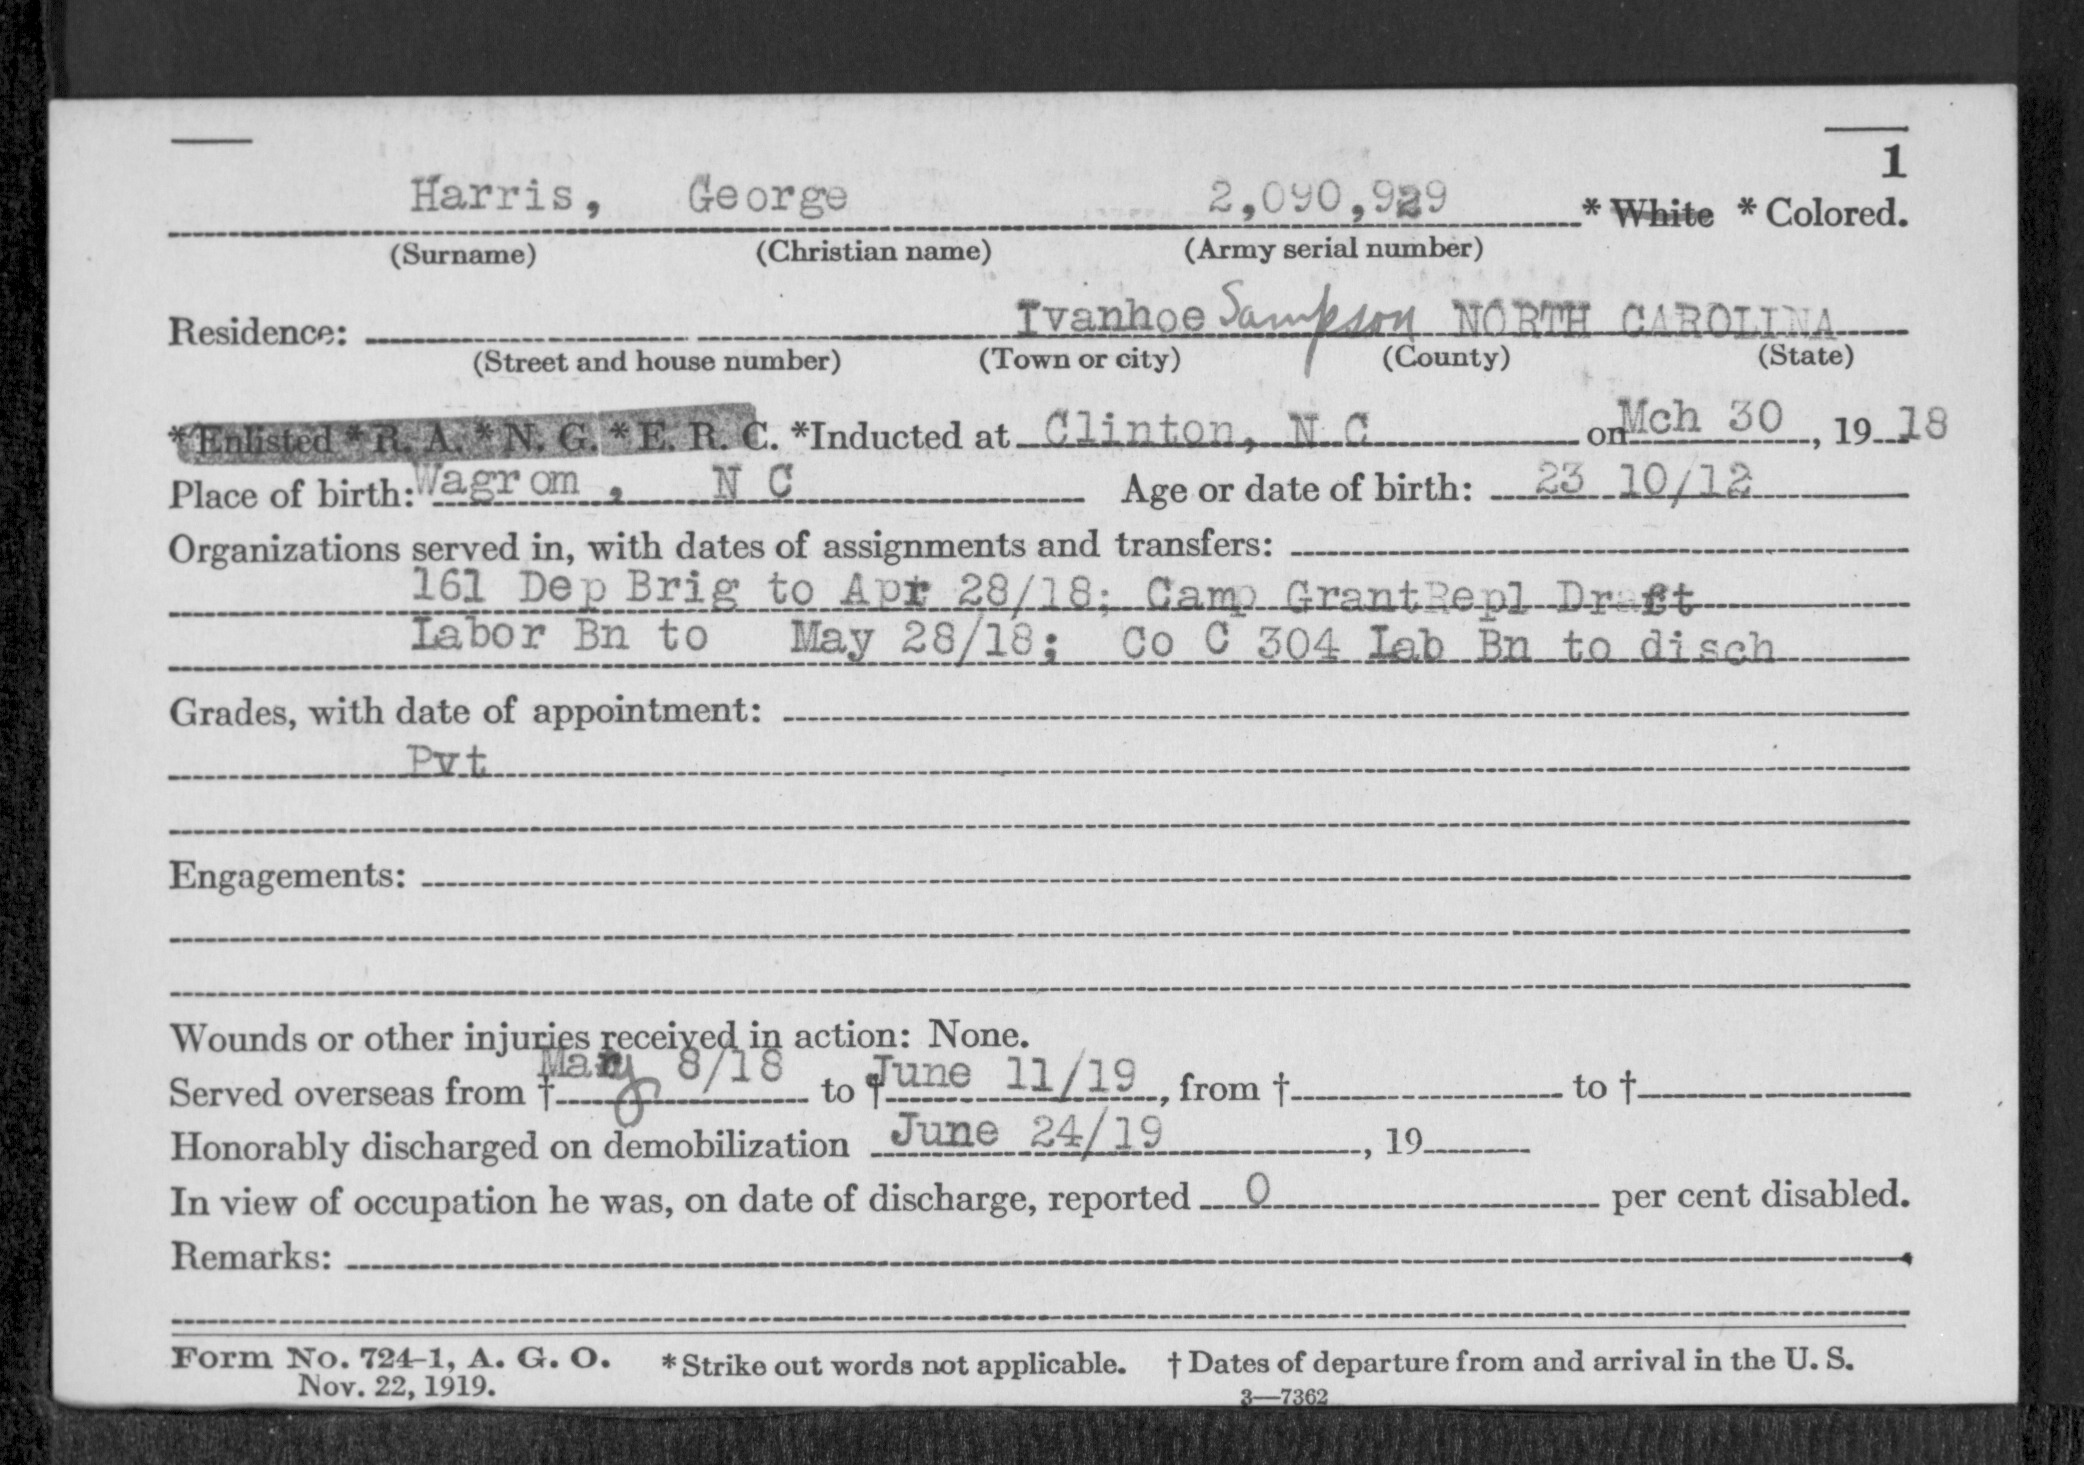 1
Harris, George 2,090,929 * White * Colored.
(Surname) (Christian name) (Army serial number)
Residence: Ivanhoe Sampson NORTH CAROLINA
(Street and house number) (Town or city) (County) (State)
*Enlisted *R. A. *N. G. *E. R. C. *Inducted at Clinton, N C on Mch 30, 1918
Place of birth: Wagrom, N C Age or date of birth: 23 10/12
Organizations served in, with dates of assignments and transfers:
161 Dep Brig to Apr 28/18; Camp Grant Repl Draft
Labor Bn to May 28/18; Co C 304 Lab Bn to disch
Grades, with date of appointment:
Pvt
Engagements:
Wounds or other injuries received in action: None.
Served overseas from † May 8/18 to † June 11/19, from † to †
Honorably discharged on demobilization June 24/19, 19
In view of occupation he was, on date of discharge, reported 0 per cent disabled.
Remarks:
Form No. 724-1, A. G. O. *Strike out words not applicable. † Dates of departure from and arrival in the U. S.
Nov. 22, 1919. 3—7362